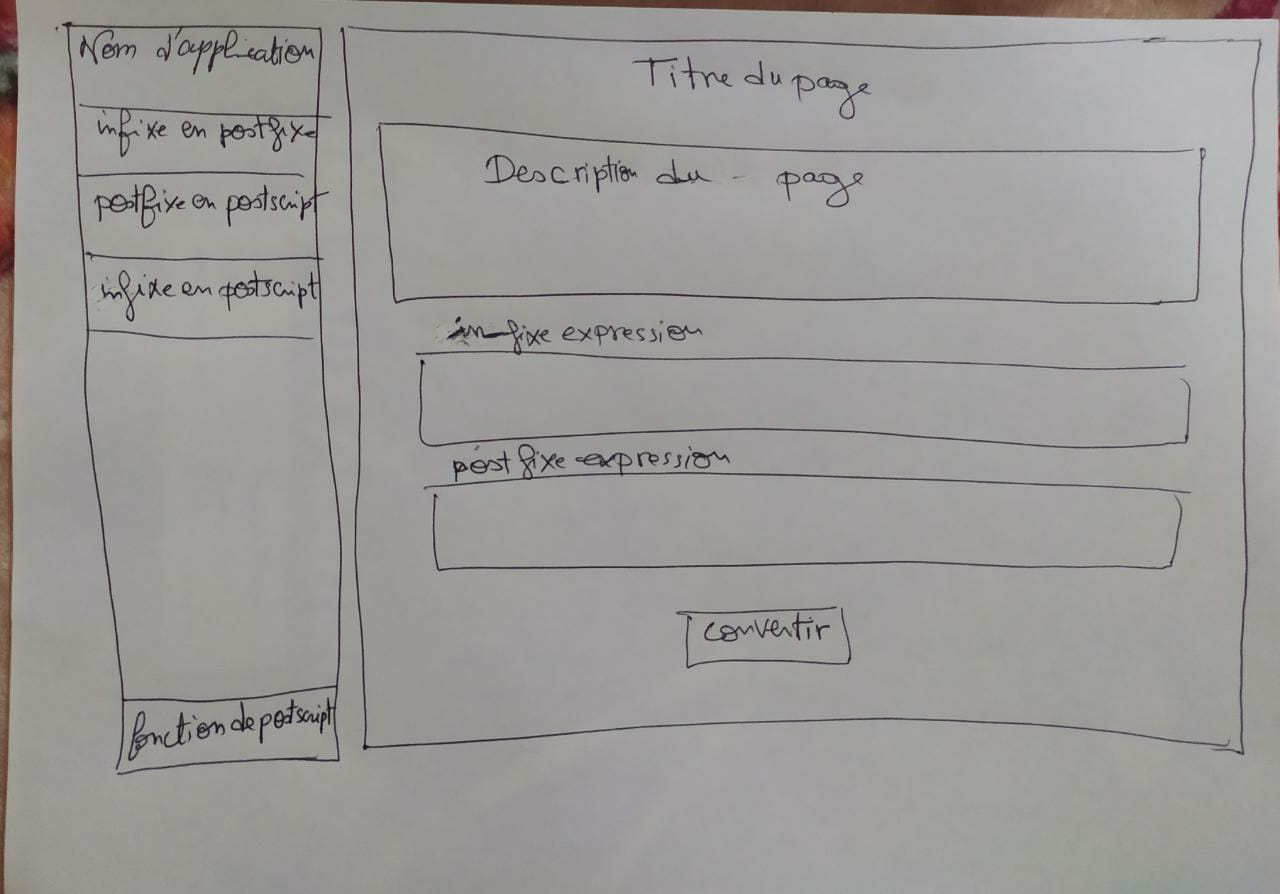 Nom d'application
infixe en postfixe
postfixe en postscript
infixe en postscript
fonction de postscript
Titre du page
Description du page
infixe expression
postfixe expression
convertir